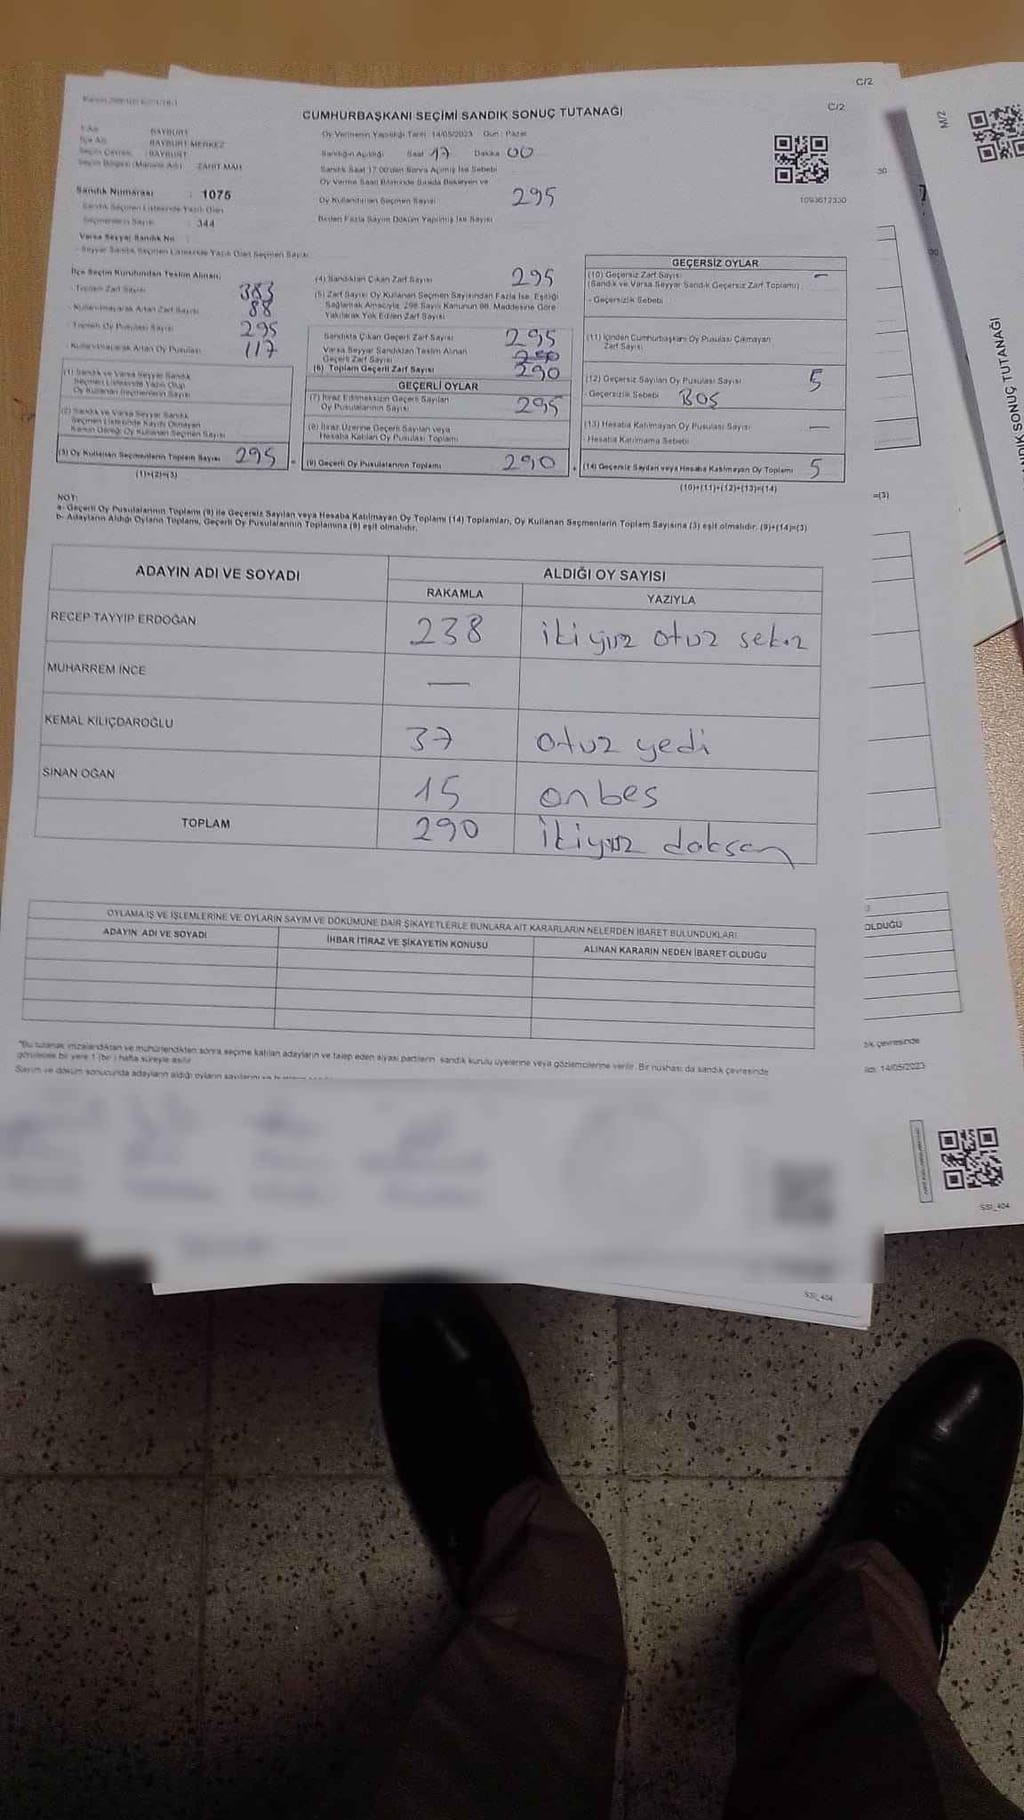 C/2
C/2
M/2
CUMHURBAŞKANI SEÇİMİ SANDIK SONUÇ TUTANAĞI
Oy Vermenin Yapıldığı Tarih: 14/05/2023 Gün: Pazar
İl Adı : BAYBURT
İlçe Adı : BAYBURT MERKEZ
Seçim Çevresi : BAYBURT
Seçim Bölgesi (Mahalle Adı) : ZAHİT MAH.
Sandığın Açıldığı Saat 17 Dakika 00
Sandık Saat 17.00'den Sonra Açılmış İse Sebebi
Oy Verme Saati Bitiminde Sırada Bekleyen ve
Oy Kullandırılan Seçmen Sayısı 295
Birden Fazla Sayım Döküm Yapılmış İse Sayısı
1093612330
Sandık Numarası : 1075
Sandık Seçmen Listesinde Yazılı Olan
Seçmenlerin Sayısı : 344
Varsa Seyyar Sandık No :
- Seyyar Sandık Seçmen Listesinde Yazılı Olan Seçmen Sayısı:
İlçe Seçim Kurulundan Teslim Alınan;
- Toplam Zarf Sayısı 383
- Kullanılmayarak Artan Zarf Sayısı 88
- Toplam Oy Pusulası Sayısı 295
- Kullanılmayarak Artan Oy Pusulası 117
(1) Sandık ve Varsa Seyyar Sandık
Seçmen Listesinde Yazılı Olup
Oy Kullanan Seçmenlerin Sayısı
(2) Sandık ve Varsa Seyyar Sandık
Seçmen Listesinde Kayıtlı Olmayan
Kanun Gereği Oy Kullanan Seçmen Sayısı
(3) Oy Kullanan Seçmenlerin Toplam Sayısı 295
(1)+(2)=(3)
(4) Sandıktan Çıkan Zarf Sayısı 295
(5) Zarf Sayısı Oy Kullanan Seçmen Sayısından Fazla İse, Eşitliği
Sağlamak Amacıyla, 298 Sayılı Kanunun 98. Maddesine Göre
Yakılarak Yok Edilen Zarf Sayısı
Sandıkta Çıkan Geçerli Zarf Sayısı 295
Varsa Seyyar Sandıktan Teslim Alınan
Geçerli Zarf Sayısı
(6) Toplam Geçerli Zarf Sayısı 290
GEÇERLİ OYLAR
(7) İtiraz Edilmeksizin Geçerli Sayılan
Oy Pusulalarının Sayısı 295
(8) İtiraz Üzerine Geçerli Sayılan veya
Hesaba Katılan Oy Pusulası Toplamı
(9) Geçerli Oy Pusulalarının Toplamı 290
GEÇERSİZ OYLAR
(10) Geçersiz Zarf Sayısı —
(Sandık ve Varsa Seyyar Sandık Geçersiz Zarf Toplamı)
- Geçersizlik Sebebi
(11) İçinden Cumhurbaşkanı Oy Pusulası Çıkmayan
Zarf Sayısı
(12) Geçersiz Sayılan Oy Pusulası Sayısı 5
- Geçersizlik Sebebi BOŞ
(13) Hesaba Katılmayan Oy Pusulası Sayısı —
- Hesaba Katılmama Sebebi
(14) Geçersiz Sayılan veya Hesaba Katılmayan Oy Toplamı 5
(10)+(11)+(12)+(13)=(14)
=(3)
NOT:
a- Geçerli Oy Pusulalarının Toplamı (9) ile Geçersiz Sayılan veya Hesaba Katılmayan Oy Toplamı (14) Toplamları, Oy Kullanan Seçmenlerin Toplam Sayısına (3) eşit olmalıdır. (9)+(14)=(3)
b- Adayların Aldığı Oyların Toplamı, Geçerli Oy Pusulalarının Toplamına (9) eşit olmalıdır.
ADAYIN ADI VE SOYADI ALDIĞI OY SAYISI
RAKAMLA YAZIYLA
RECEP TAYYİP ERDOĞAN 238 ikiyüz otuz sekiz
MUHARREM İNCE —
KEMAL KILIÇDAROĞLU 37 otuz yedi
SİNAN OĞAN 15 onbeş
TOPLAM 290 ikiyüz doksan
OYLAMA İŞ VE İŞLEMLERİNE VE OYLARIN SAYIM VE DÖKÜMÜNE DAİR ŞİKAYETLERLE BUNLARA AİT KARARLARIN NELERDEN İBARET BULUNDUKLARI
ADAYIN ADI VE SOYADI İHBAR İTİRAZ VE ŞİKAYETİN KONUSU ALINAN KARARIN NEDEN İBARET OLDUĞU
OLDUĞU
*Bu tutanak imzalandıktan ve mühürlendikten sonra seçime katılan adayların ve talep eden siyasi partilerin sandık kurulu üyelerine veya gözlemcilerine verilir. Bir nüshası da sandık çevresinde
görülecek bir yere 1 (bir) hafta süreyle asılır.
Sayım ve döküm sonucunda adayların aldığı oyların sayılarını
çevresinde
14/05/2023
SSI_404
SSI_404
SANDIK SONUÇ TUTANAĞI